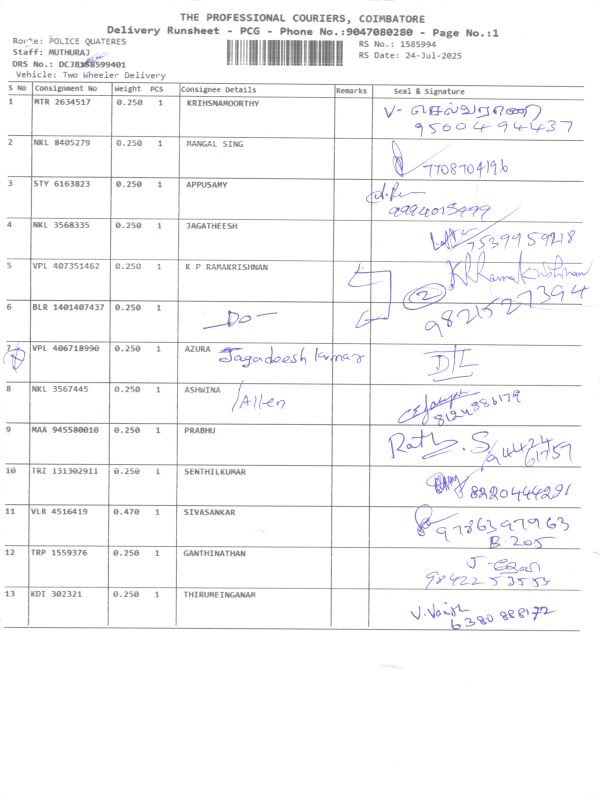 THE PROFESSIONAL COURIERS, COIMBATORE
Delivery Runsheet - PCG - Phone No.:9047080280 - Page No.:1
Route: POLICE QUATERES
RS No.: 1585994
Staff: MUTHURAJ
RS Date: 24-Jul-2025
Vehicle: Two Wheeler Delivery
S No Consignment No Weight PCS Consignee Details Remarks Seal & Signature
1 MTR 2634517 0.250 1 KRIHSNAMOORTHY V- செல்வராணி
9500494437
2 NKL 8405279 0.250 1 MANGAL SING
7708704196
3 STY 6163823 0.250 1 APPUSAMY
9994015999
4 NKL 3568335 0.250 1 JAGATHEESH
7539959218
5 VPL 407351462 0.250 1 K P RAMAKRISHNAN KP Ramakrishnan
2
9821527394
6 BLR 1401407437 0.250 1 -Do-
7 VPL 406718990 0.250 1 AZURA Jagadeesh kumar DTL
8 NKL 3567445 0.250 1 ASHWINA /Allen
8124886179
9 MAA 945580010 0.250 1 PRABHU S
94424
61757
10 TRZ 131302911 0.250 1 SENTHILKUMAR
8220444291
11 VLR 4516419 0.470 1 SIVASANKAR
9786397963
B.205
12 TRP 1559376 0.250 1 GANTHINATHAN
9842253553
13 KDI 302321 0.250 1 THIRUMEINGANAM
6380888172